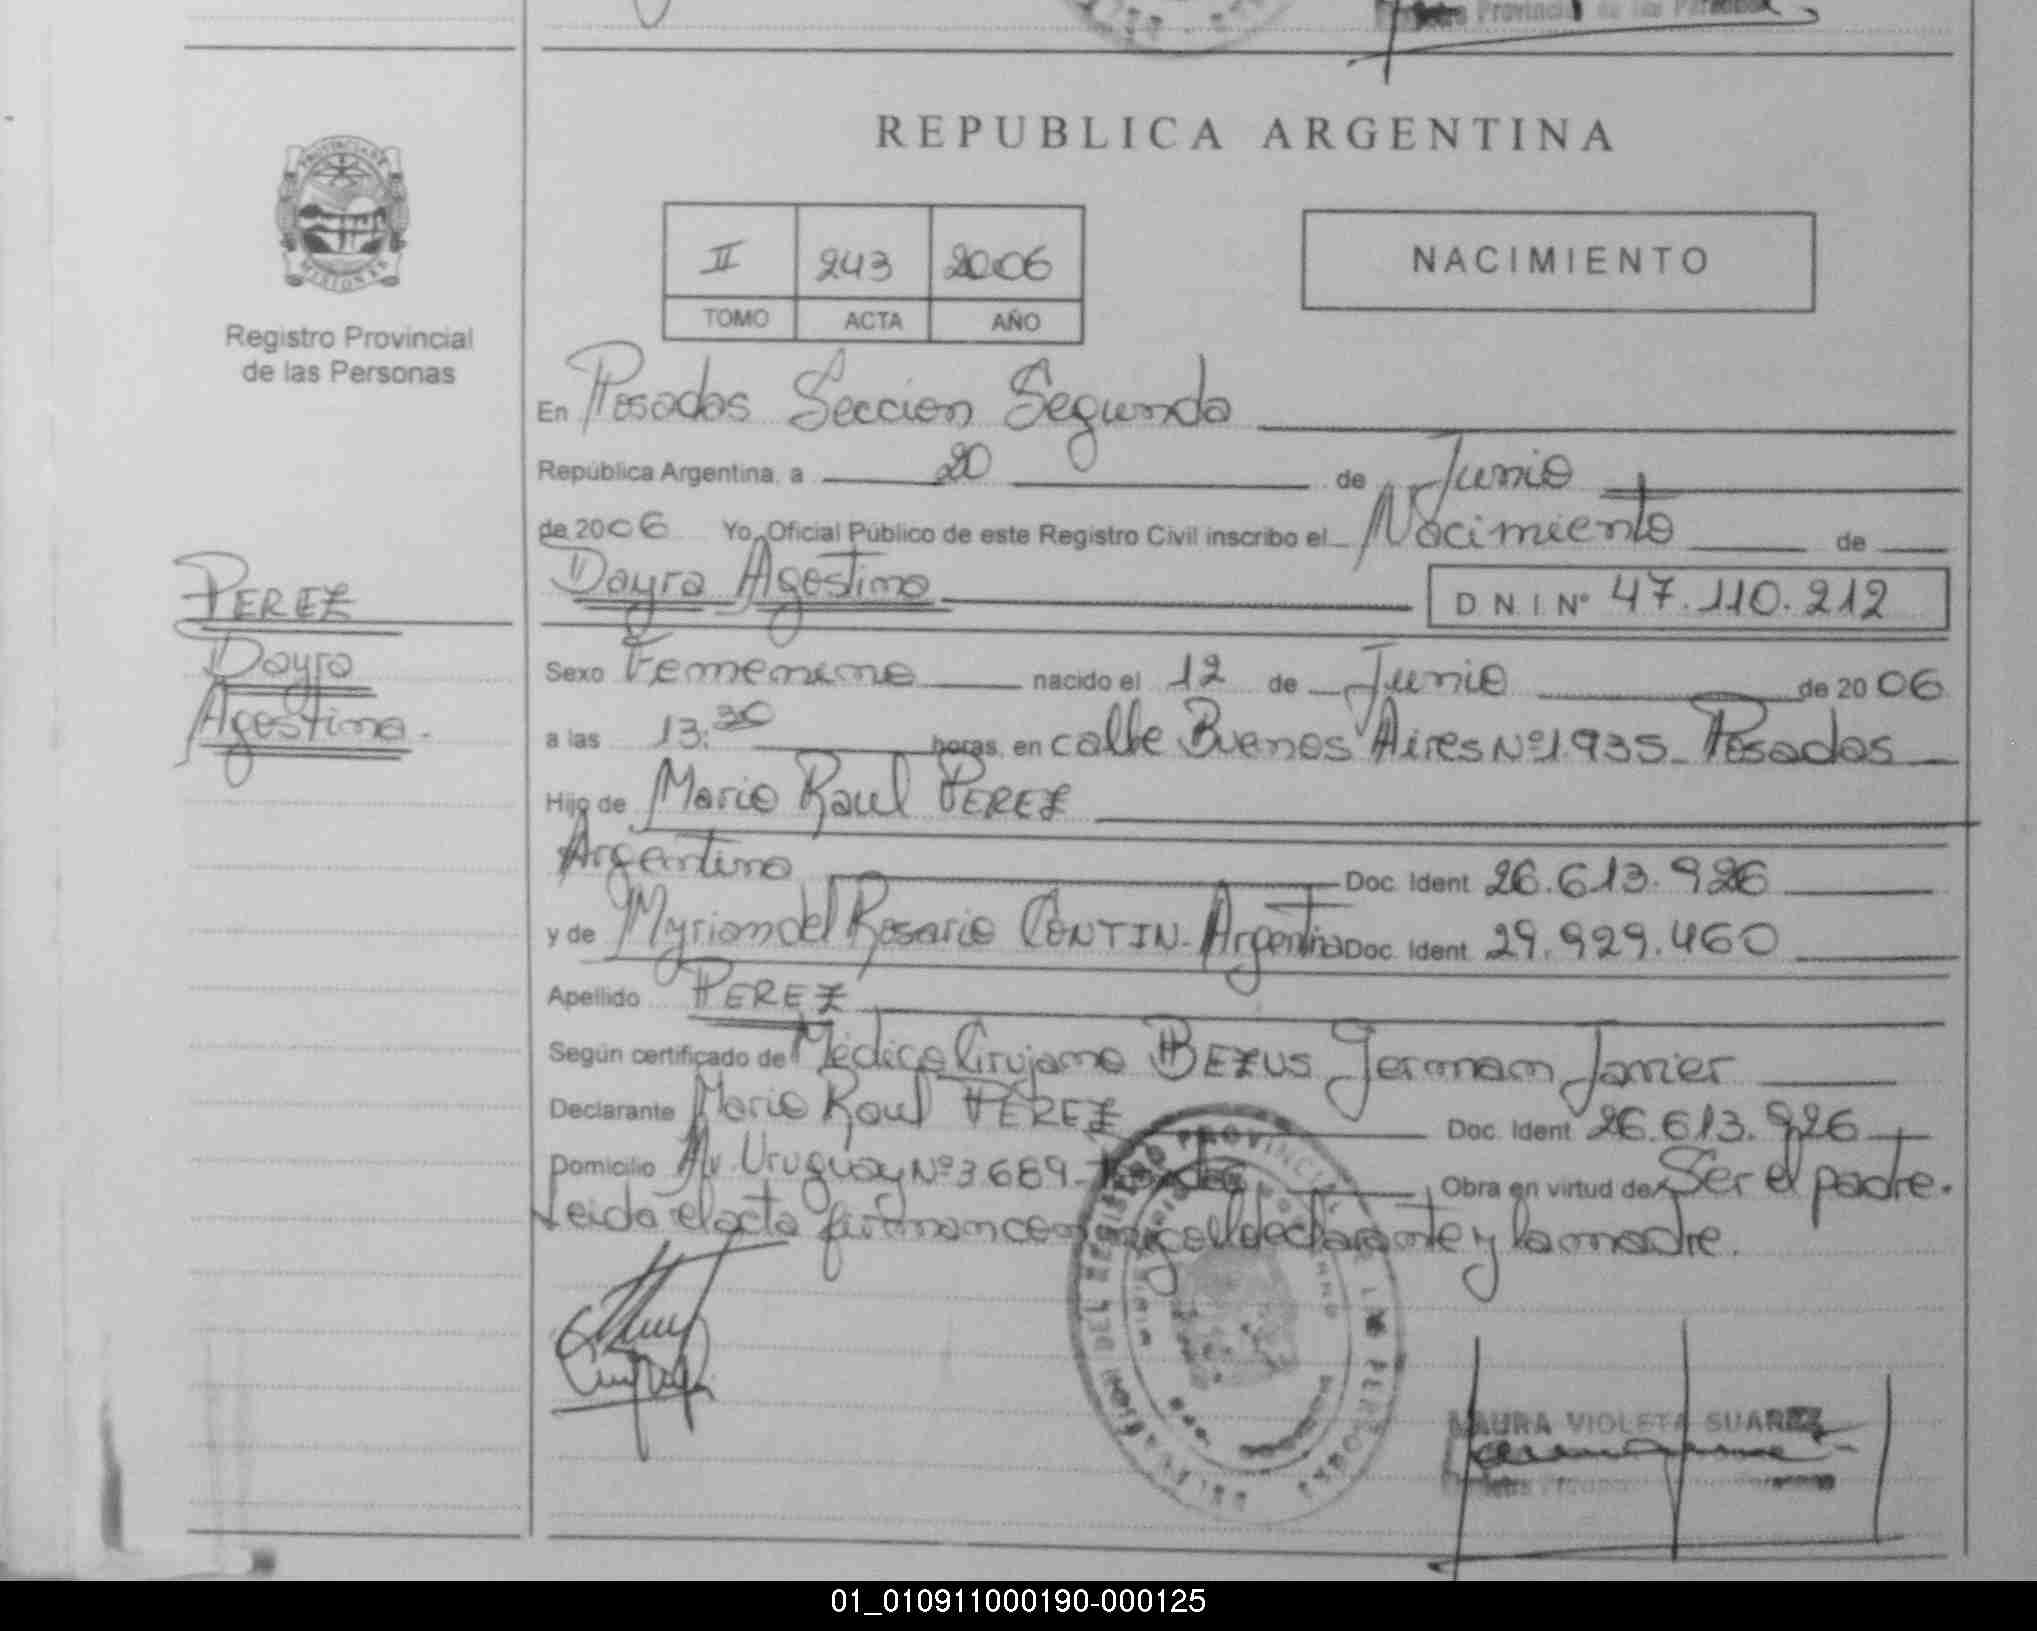 REPUBLICA ARGENTINA
PROVINCIA DE
MISIONES
Registro Provincial
de las Personas
II 243 2006
TOMO ACTA AÑO
NACIMIENTO
En Posadas Seccion Segunda
República Argentina, a 20 de Junio
de 2006 Yo, Oficial Público de este Registro Civil inscribo el Nacimiento de
PEREZ
Dayra
Agostina.
Dayra Agostina D N. I. Nº 47.110.212
Sexo Femenino nacido el 12 de Junio de 2006
a las 13:30 horas, en calle Buenos Aires Nº 1.935 - Posadas
Hijo de Mario Raul PEREZ
Argentino Doc. Ident 26.613.926
y de Myriam del Rosario CONTIN - Argentina Doc. Ident. 29.929.460
Apellido PEREZ
Según certificado de Médico Cirujano BEZUS German Javier
Declarante Mario Raul PEREZ Doc. Ident 26.613.926
Domicilio Av. Uruguay Nº 3.689 - Posadas Obra en virtud de Ser el padre.
Leida el acta firman conmigo el declarante y la madre.
MAURA VIOLETA SUAREZ
01_010911000190-000125